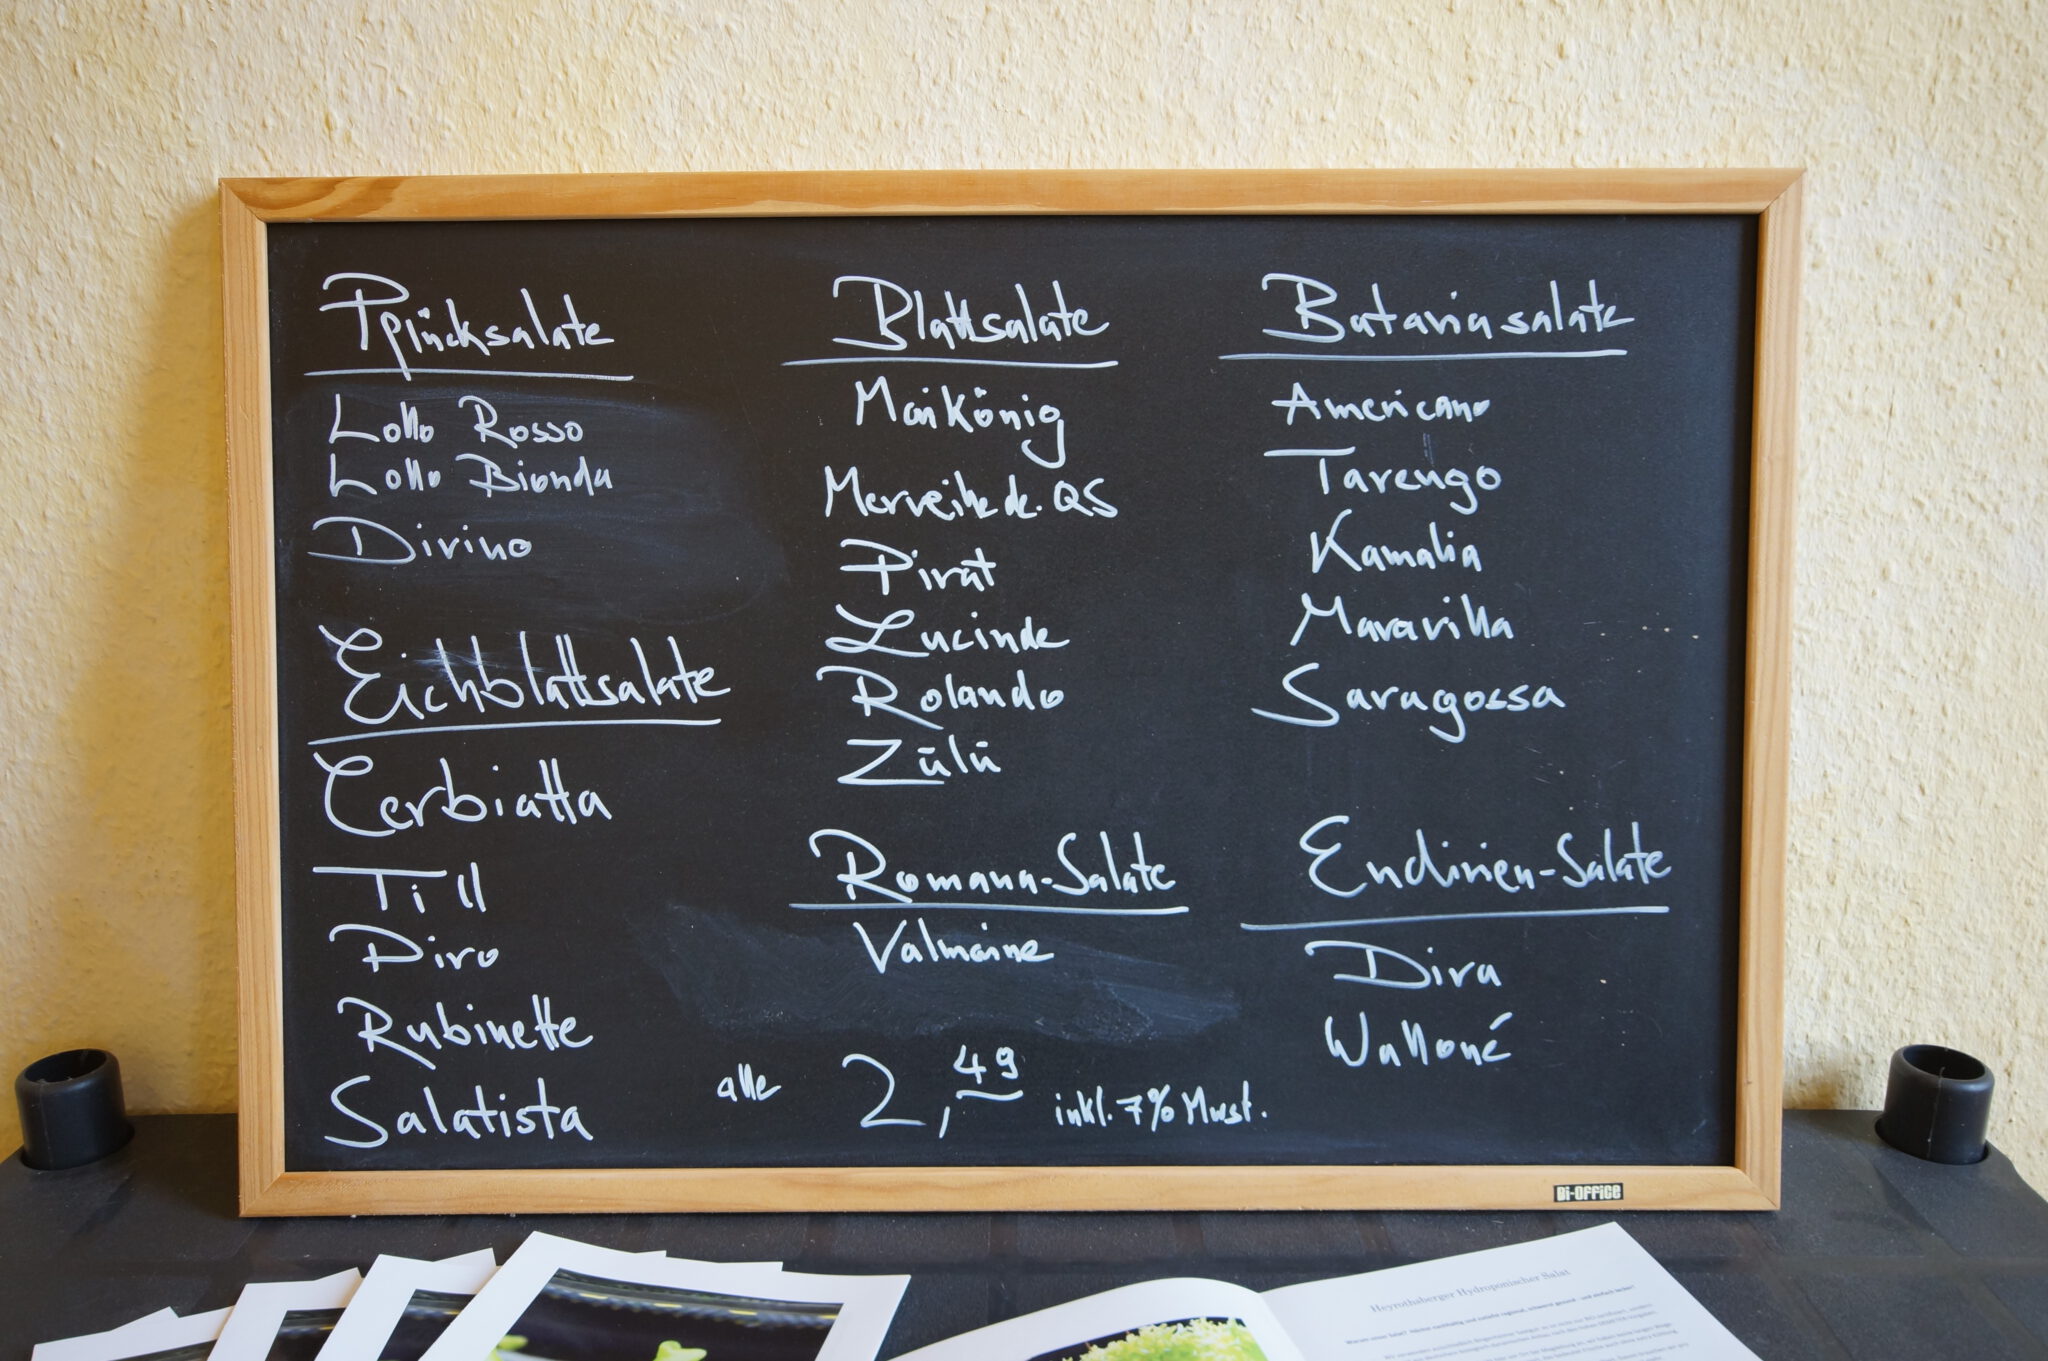 Pflücksalate
Lollo Rosso
Lollo Bionda
Divino
Eichblattsalate
Cerbiatta
Till
Piro
Rubinette
Salatista
Blattsalate
Maikönig
Merveille de. QS
Pirat
Lucinde
Rolando
Zülü
Romana-Salate
Valmaine
Bataviasalate
Americano
Tarengo
Kamalia
Maravilla
Saragossa
Endivien-Salate
Diva
Walloné
alle 2,49 inkl. 7% Mwst.
Bi-OFFICE
Heyrothsberger Hydroponischer Salat